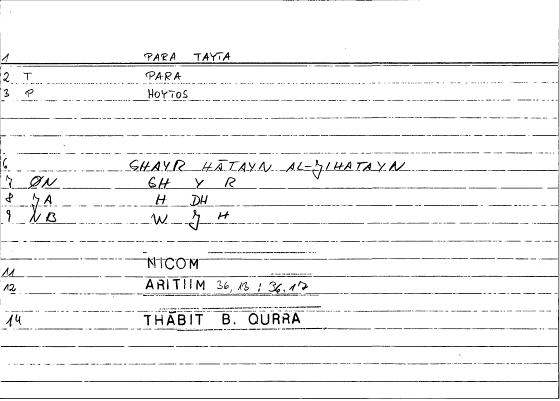 1 PARA TAYTA
2 T PARA
3 P HOYTOS
6 GHAYR HĀTAYN AL-ǦIHATAYN
7 ØN GH Y R
8 ǦA H DH
9 NB W Ǧ H
11 NICOM
12 ARITIIM 36,13 : 36.17
14 THĀBIT B. QURRA